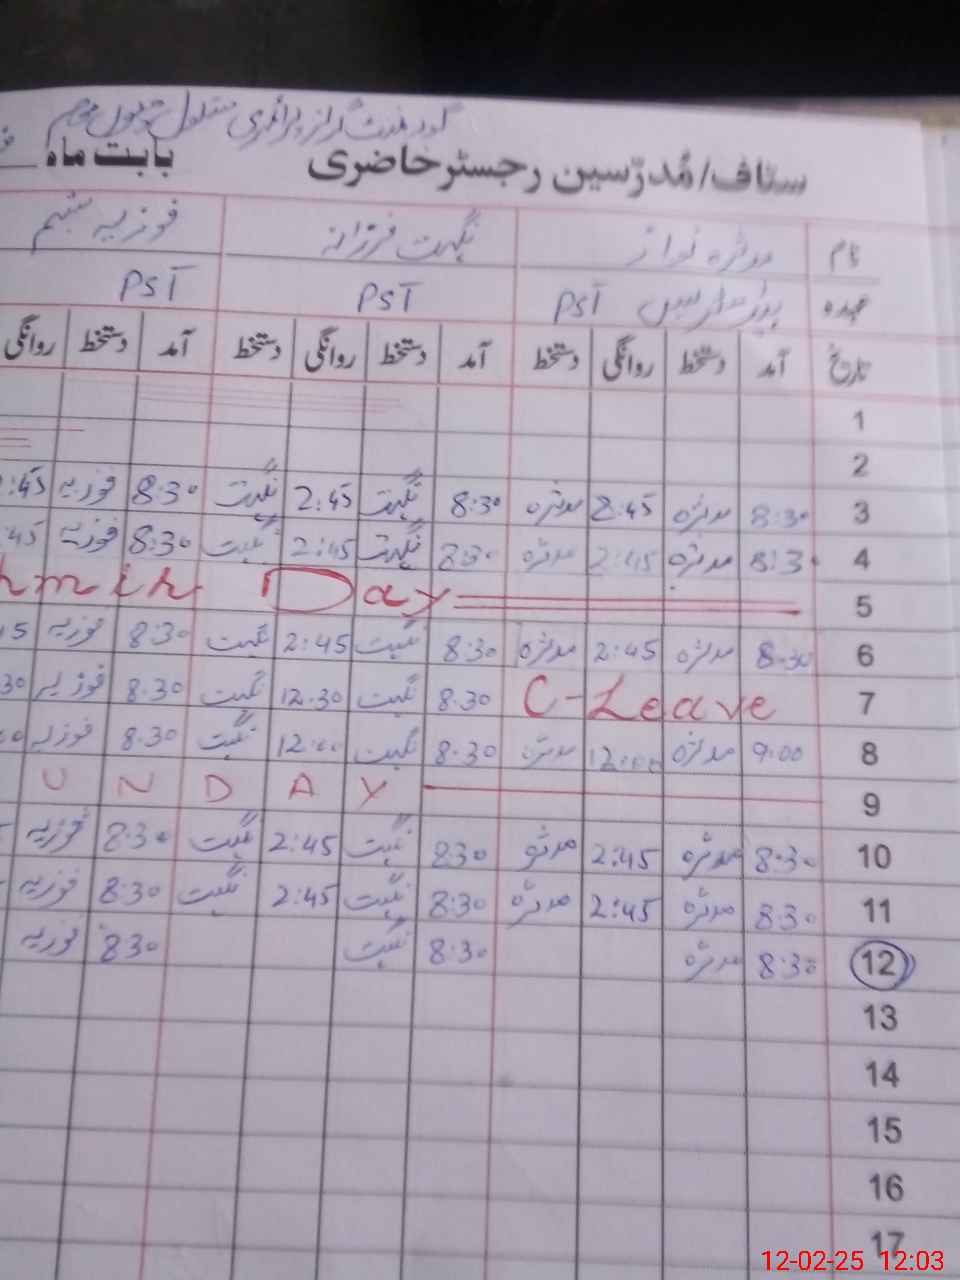 گورنمنٹ گرلز پرائمری سکول
سٹاف/مُدرّسین رجسٹر حاضری بابت ماہ
نام مدثرہ نواز نگہت فرزانہ فوزیہ تبسم
عہدہ PST PST PST
تاریخ آمد دستخط روانگی دستخط آمد دستخط روانگی دستخط آمد دستخط روانگی
1
2
3 8:30 مدثرہ 8:45 مدثرہ 8:30 نگہت 2:45 نگہت 8:30 فوزیہ :45
4 8:30 مدثرہ 2:45 مدثرہ 8:30 نگہت 2:45 نگہت 8:30 فوزیہ :45
5 hmir Day
6 8:30 مدثرہ 2:45 مدثرہ 8:30 نگہت 2:45 نگہت 8:30 فوزیہ 5
7 C-Leave 8.30 نگہت 12.30 نگہت 8.30 فوزیہ 30
8 9:00 مدثرہ 12:00 مدثرہ 8:30 نگہت 12:00 نگہت 8:30 فوزیہ 0
9 UNDAY
10 8:30 مدثرہ 2:45 مدثرہ 830 نگہت 2:45 نگہت 8:30 فوزیہ
11 8:30 مدثرہ 2:45 مدثرہ 8:30 نگہت 2:45 نگہت 8:30 فوزیہ
12 8:30 مدثرہ 8:30 نگہت 830 فوزیہ
13
14
15
16
17
12-02-25 12:03